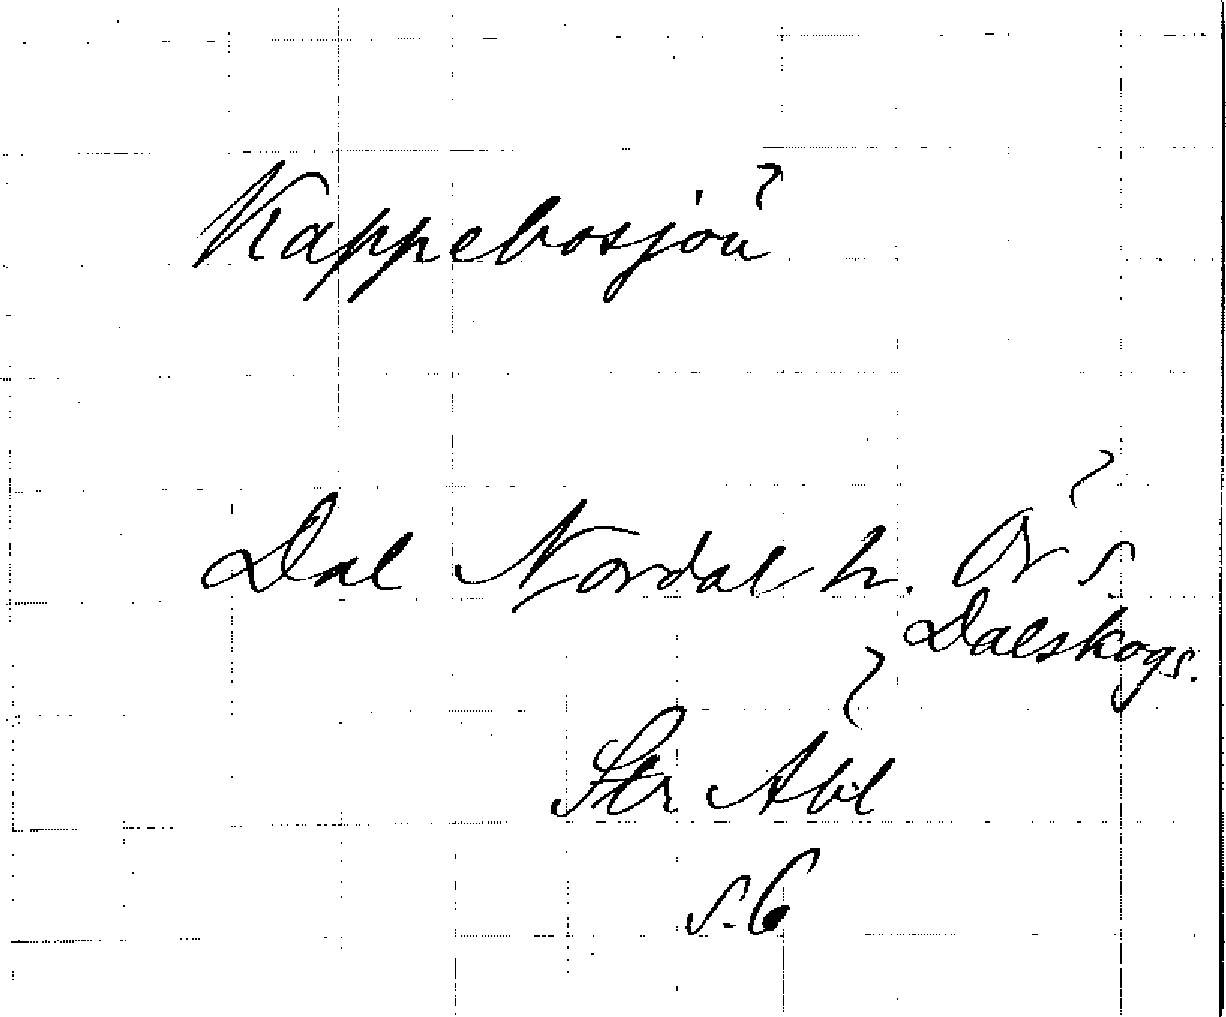 Kappebosjön?
Dal Nordal h. Ör s.
Dalskogs.
Str Abl
s. 6